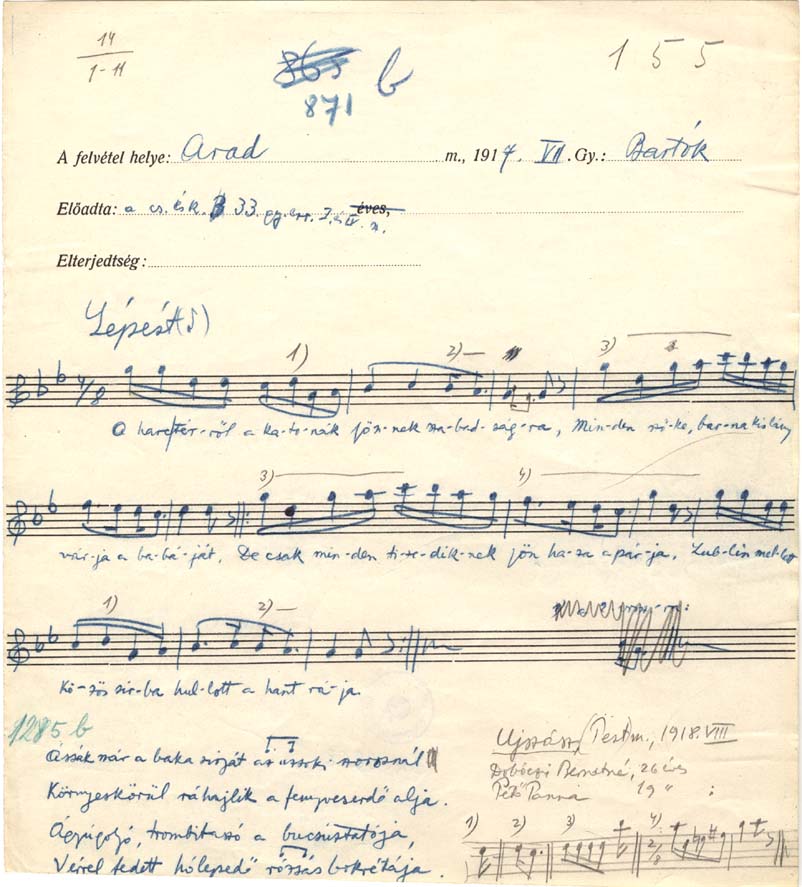 14
1-11
865 b
871
155
A felvétel helye: Arad m., 1917. VII. Gy.: Bartók
Előadta: a cs. és k. 33. gy. ezr. I. és IV. z.
éves,
Elterjedtség:
Lépést(!)
1) 2) 3)
4/8
A harctér-ről a ka-to-nák jön-nek sza-bad-ság-ra, Min-den sző-ke, bar-na kislány
3) 4)
vár-ja a ba-bá-ját, De csak min-den ti-ze-dik-nek jön ha-za a pár-ja. Lub-lin mel-lett
1) 2)
Kö-zös sír-ba hul-lott a hant rá-ja.
1285 b
Ássák már a baka sírját az uzsoki szorosnál
Környeskörül ráhajlik a fenyveserdő alja.
Ágyúgolyó, trombitaszó a bucsúztatója,
Vérrel fedett hólepedő rózsás bokrétája.
Ujszász, (Pest m., 1918. VIII
Dobóczi Bernátné, 26 éves
Pető Panna 19 "
1) 2) 3) 4)
2/8